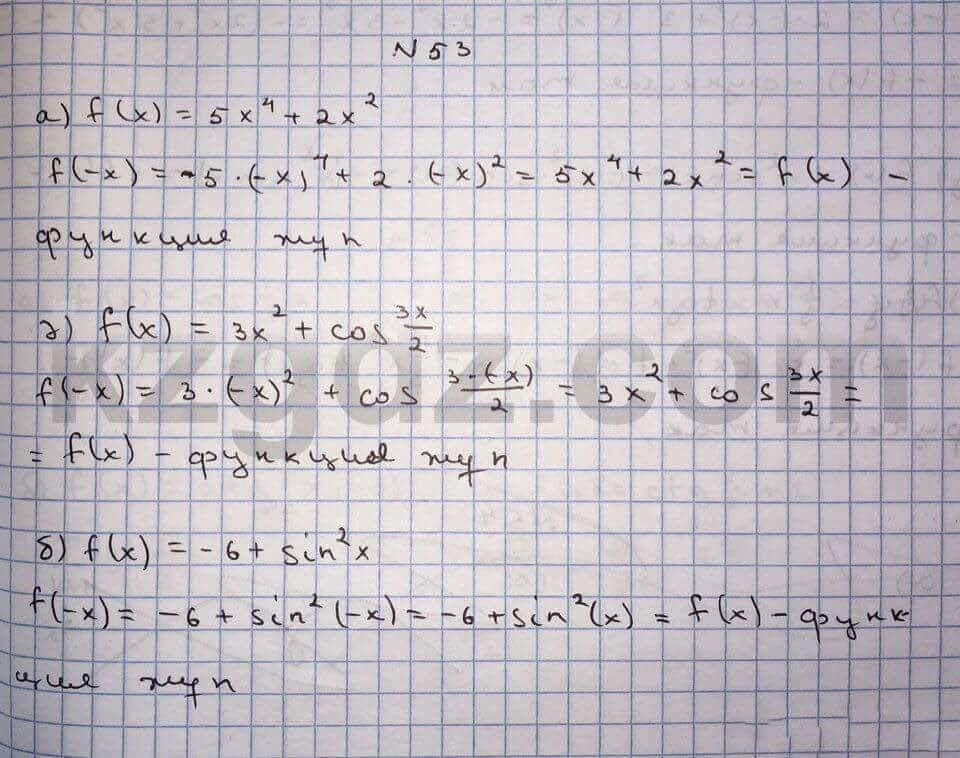 N 53
а) f(x) = 5x⁴ + 2x²
f(-x) = -5 · (-x)⁴ + 2 · (-x)² = 5x⁴ + 2x² = f(x) -
функция жуп
ә) f(x) = 3x² + cos 3x/2
f(-x) = 3 · (-x)² + cos 3·(-x)/2 = 3x² + cos 3x/2 =
= f(x) - функция жуп
б) f(x) = -6 + sin²x
f(-x) = -6 + sin²(-x) = -6 + sin²(x) = f(x) - функ
ция жуп
kzgdz.com